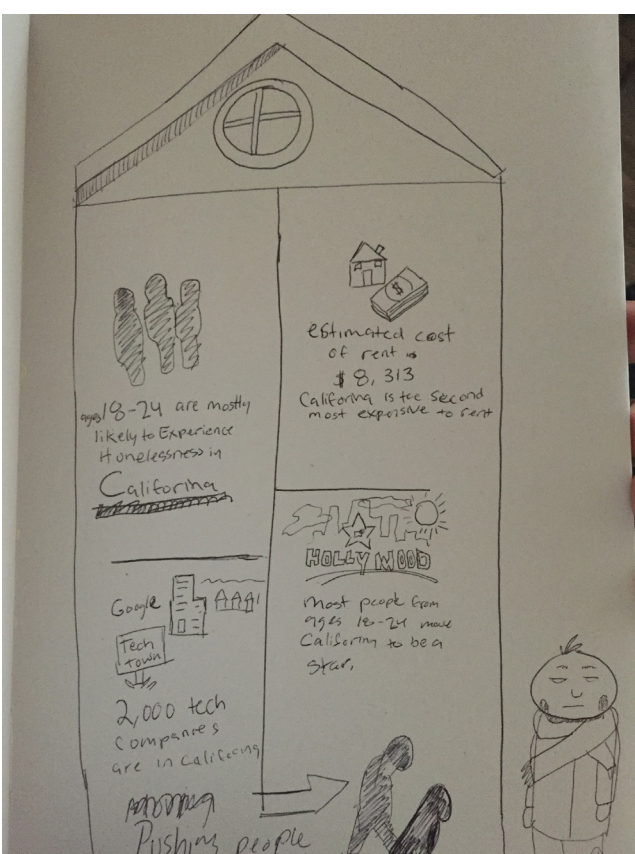 ages 18-24 are mostly
likely to Experience
Homelessness in
Califorina
$
estimated cost
of rent is
$ 8,313
California is the second
most expensive to rent
Google
Tech
Town
2,000 tech
companies
are in California
Pushing people
HOLLYWOOD
Most people from
ages 18-24 move
California to be a
star.